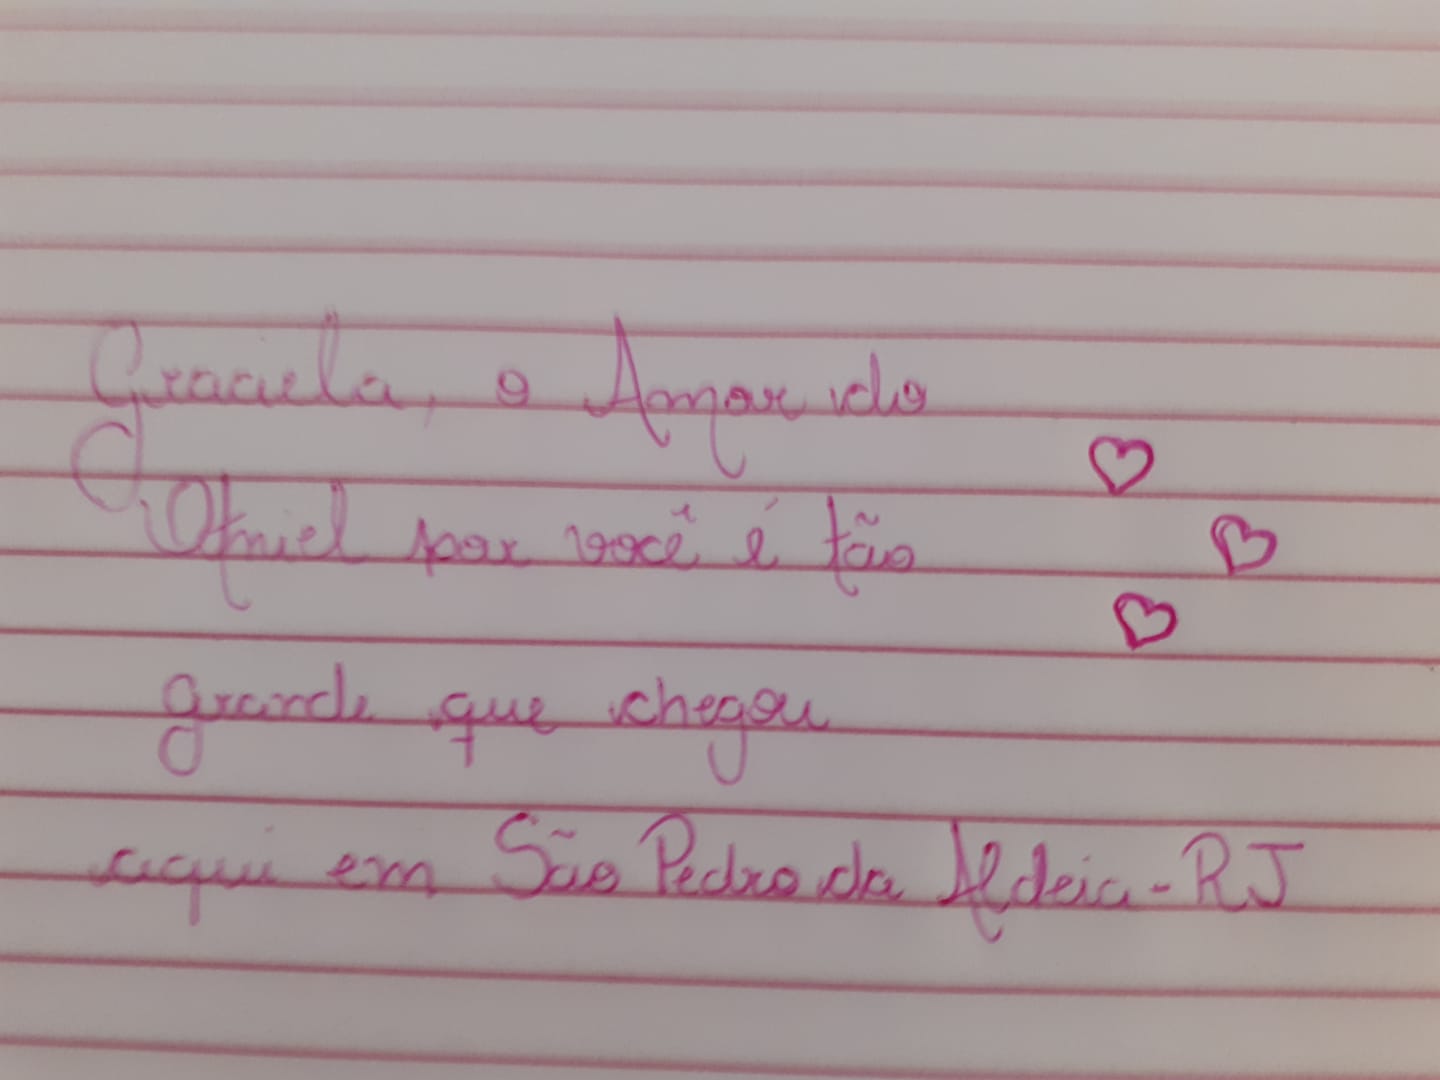 Graciela, o Amor do
Otniel por você é tão
grande que chegou
aqui em São Pedro da Aldeia - RJ